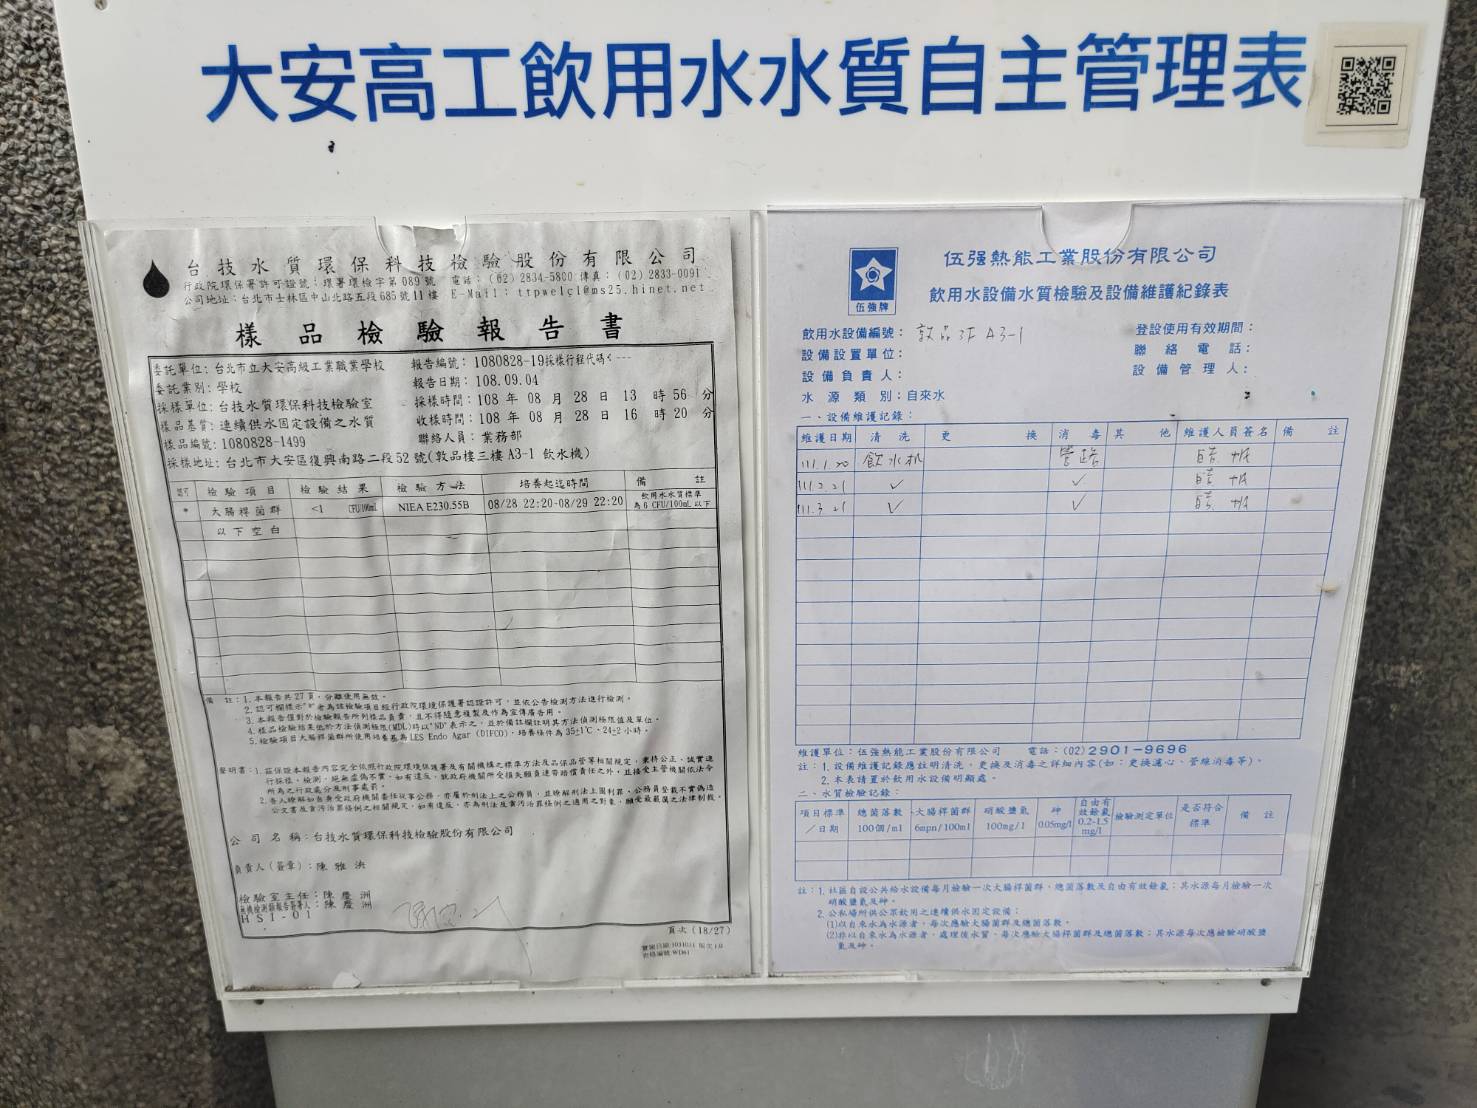 大安高工飲用水水質自主管理表
台技水質環保科技檢驗股份有限公司
行政院環保署許可證號：環署環檢字第089號 電話：(02) 2834-5800 傳真：(02) 2833-0091
公司地址：台北市士林區中山北路五段685號11樓 E-Mail：ttpwelcl@ms25.hinet.net
樣品檢驗報告書
委託單位：台北市立大安高級工業職業學校 報告編號：1080828-19採樣行程代碼<---
委託業別：學校 報告日期：108.09.04
採樣單位：台技水質環保科技檢驗室 採樣時間：108 年 08 月 28 日 13 時 56 分
樣品基質：連續供水固定設備之水質 收樣時間：108 年 08 月 28 日 16 時 20 分
樣品編號：1080828-1499 聯絡人員：業務部
採樣地址：台北市大安區復興南路二段52號(敦品樓三樓A3-1 飲水機)
檢驗項目 檢驗結果 檢驗方法 培養起迄時間 備註
* 大腸桿菌群 <1 CFU/100mL NIEA E230.55B 08/28 22:20-08/29 22:20 飲用水水質標準為6 CFU/100mL以下
以下空白
備註：1.本報告共27頁，分離使用無效。
2.認可欄標示"*"者為該檢驗項目經行政院環境保護署認證許可，並依公告檢測方法進行檢測。
3.本報告僅對於檢驗報告所列樣品負責，且不得隨意複製及作為宣傳廣告用。
4.樣品檢驗結果低於方法偵測極限(MDL)時以"ND"表示之，並於備註欄註明其方法偵測極限值及單位。
5.檢驗項目大腸桿菌群所使用培養基為LES Endo Agar (DIFCO)，培養條件為35±1℃、24±2小時。
公司名稱：台技水質環保科技檢驗股份有限公司
負責人(簽章)：陳雅泱
檢驗室主任：陳慶洲
HSI-01
頁次 (18/27)
伍強牌
伍强熱能工業股份有限公司
飲用水設備水質檢驗及設備維護紀錄表
飲用水設備編號：敦品3F A3-1 登設使用有效期間：
設備設置單位： 聯絡電話：
設備負責人： 設備管理人：
水源類別：自來水
一、設備維護記錄：
維護日期 清洗 更換 消毒 其他 維護人員簽名 備註
111.1.20 飲水机 管路
111.2.21 ✓ ✓
111.3.21 ✓ ✓
維護單位：伍強熱能工業股份有限公司 電話：(02)2901-9696
註：1.設備維護記錄應註明清洗、更換及消毒之詳細內容(如：更換濾心、管線消毒等)。
2.本表請置於飲用水設備明顯處。
二、水質檢驗記錄：
項目標準／日期 總菌落數 100個/ml 大腸桿菌群 6mpn/100ml 硝酸鹽氮 100mg/l 砷 0.05mg/l 自由有效餘氯 0.2-1.5 mg/l 檢驗測定單位 是否符合標準 備註
註：1.社區自設公共給水設備每月檢驗一次大腸桿菌群、總菌落數及自由有效餘氯；其水源每月檢驗一次
硝酸鹽氮及砷。
2.公私場所供公眾飲用之連續供水固定設備：
(1)以自來水為水源者，每次應驗大腸菌群及總菌落數。
(2)非以自來水為水源者，處理後水質，每次應驗大腸桿菌群及總菌落數；其水源每次應檢驗硝酸鹽
氮及砷。